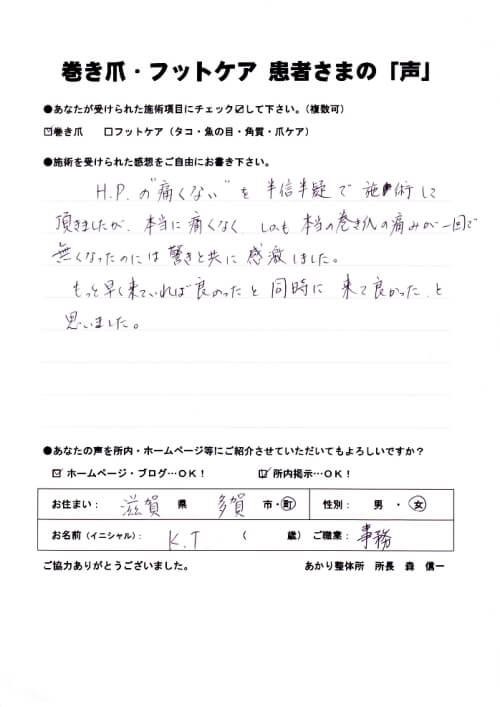 巻き爪・フットケア 患者さまの「声」
●あなたが受けられた施術項目にチェック☑して下さい。（複数可）
☑巻き爪　☐フットケア（タコ・魚の目・角質・爪ケア）
●施術を受けられた感想をご自由にお書き下さい。
H.P.の"痛くない"を半信半疑で施術して
頂きましたが、本当に痛くなく、しかも本当の巻き爪の痛みが一回で
無くなったのには驚きと共に感激しました。
もっと早く来ていれば良かったと同時に来て良かった、と
思いました。
●あなたの声を所内・ホームページ等にご紹介させていただいてもよろしいですか？
☑ホームページ・ブログ…ＯＫ！　☑所内掲示…ＯＫ！
お住まい：滋賀 県 多賀 市・町 性別：男・女
お名前（イニシャル）：K.T （　歳） ご職業：事務
ご協力ありがとうございました。　あかり整体所　所長　森　信一